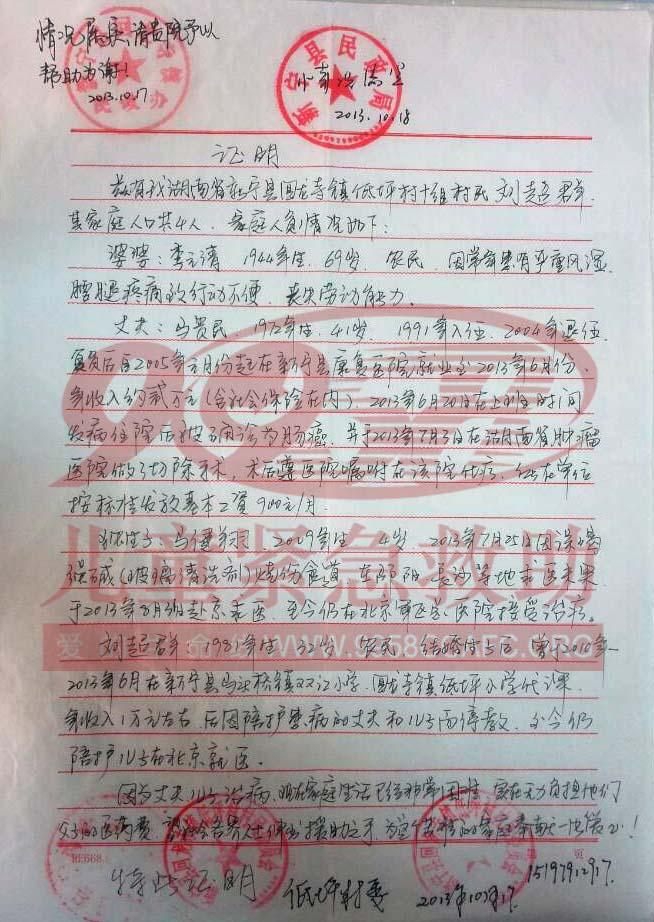 情况属实，请贵院予以
帮助为谢！
2013.10.17
新宁县民政局
情况属实
2013.10.18
证明
兹有我湖南省新宁县回龙寺镇低坪村十组村民刘超群,
其家庭人口共4人，家庭人员情况如下：
婆婆：李元清 1944年生，69岁 农民，因常年患有严重风湿
腰腿疼痛致行动不便，丧失劳动能力。
丈夫：马贵民 1972年生，41岁 1991年入伍，2004年退伍
复员后自2005年元月份起在新宁县康复医院就业至2013年6月份，
年收入约贰万元（含社会保险在内）2013年6月20日在上班时间
发病住院后被确诊为肠癌，并于2013年7月3日在湖南省肿瘤
医院做了切除手术，术后遵医院嘱咐在该院化疗，现在单位
按标准发放基本工资900元/月。
儿童紧急救助
马健翔 2009年生 4岁 2013年7月25日因误喝
强碱（玻璃清洗剂）烧伤食道，在邵阳、长沙等地求医未果
于2013年8月 赴京求医，至今仍在北京 医院接受治疗。
刘超群 1981年生 32岁 农民 结婚生子后，曾于2010年-
2013年6月在新宁县马头桥镇双江小学，回龙寺镇低坪小学代课
年收入1万元左右，后因陪护患病的丈夫和儿子而停教，至今仍
陪护儿子在北京就医。
因为丈夫儿子治病，现在家庭生活已经非常困难，实在无力负担他们
父子的医药费，望社会各界人士伸出援助之手，为这个苦难的家庭奉献一份爱心！
特此证明
低坪村委
2013年10月17
15197912917.